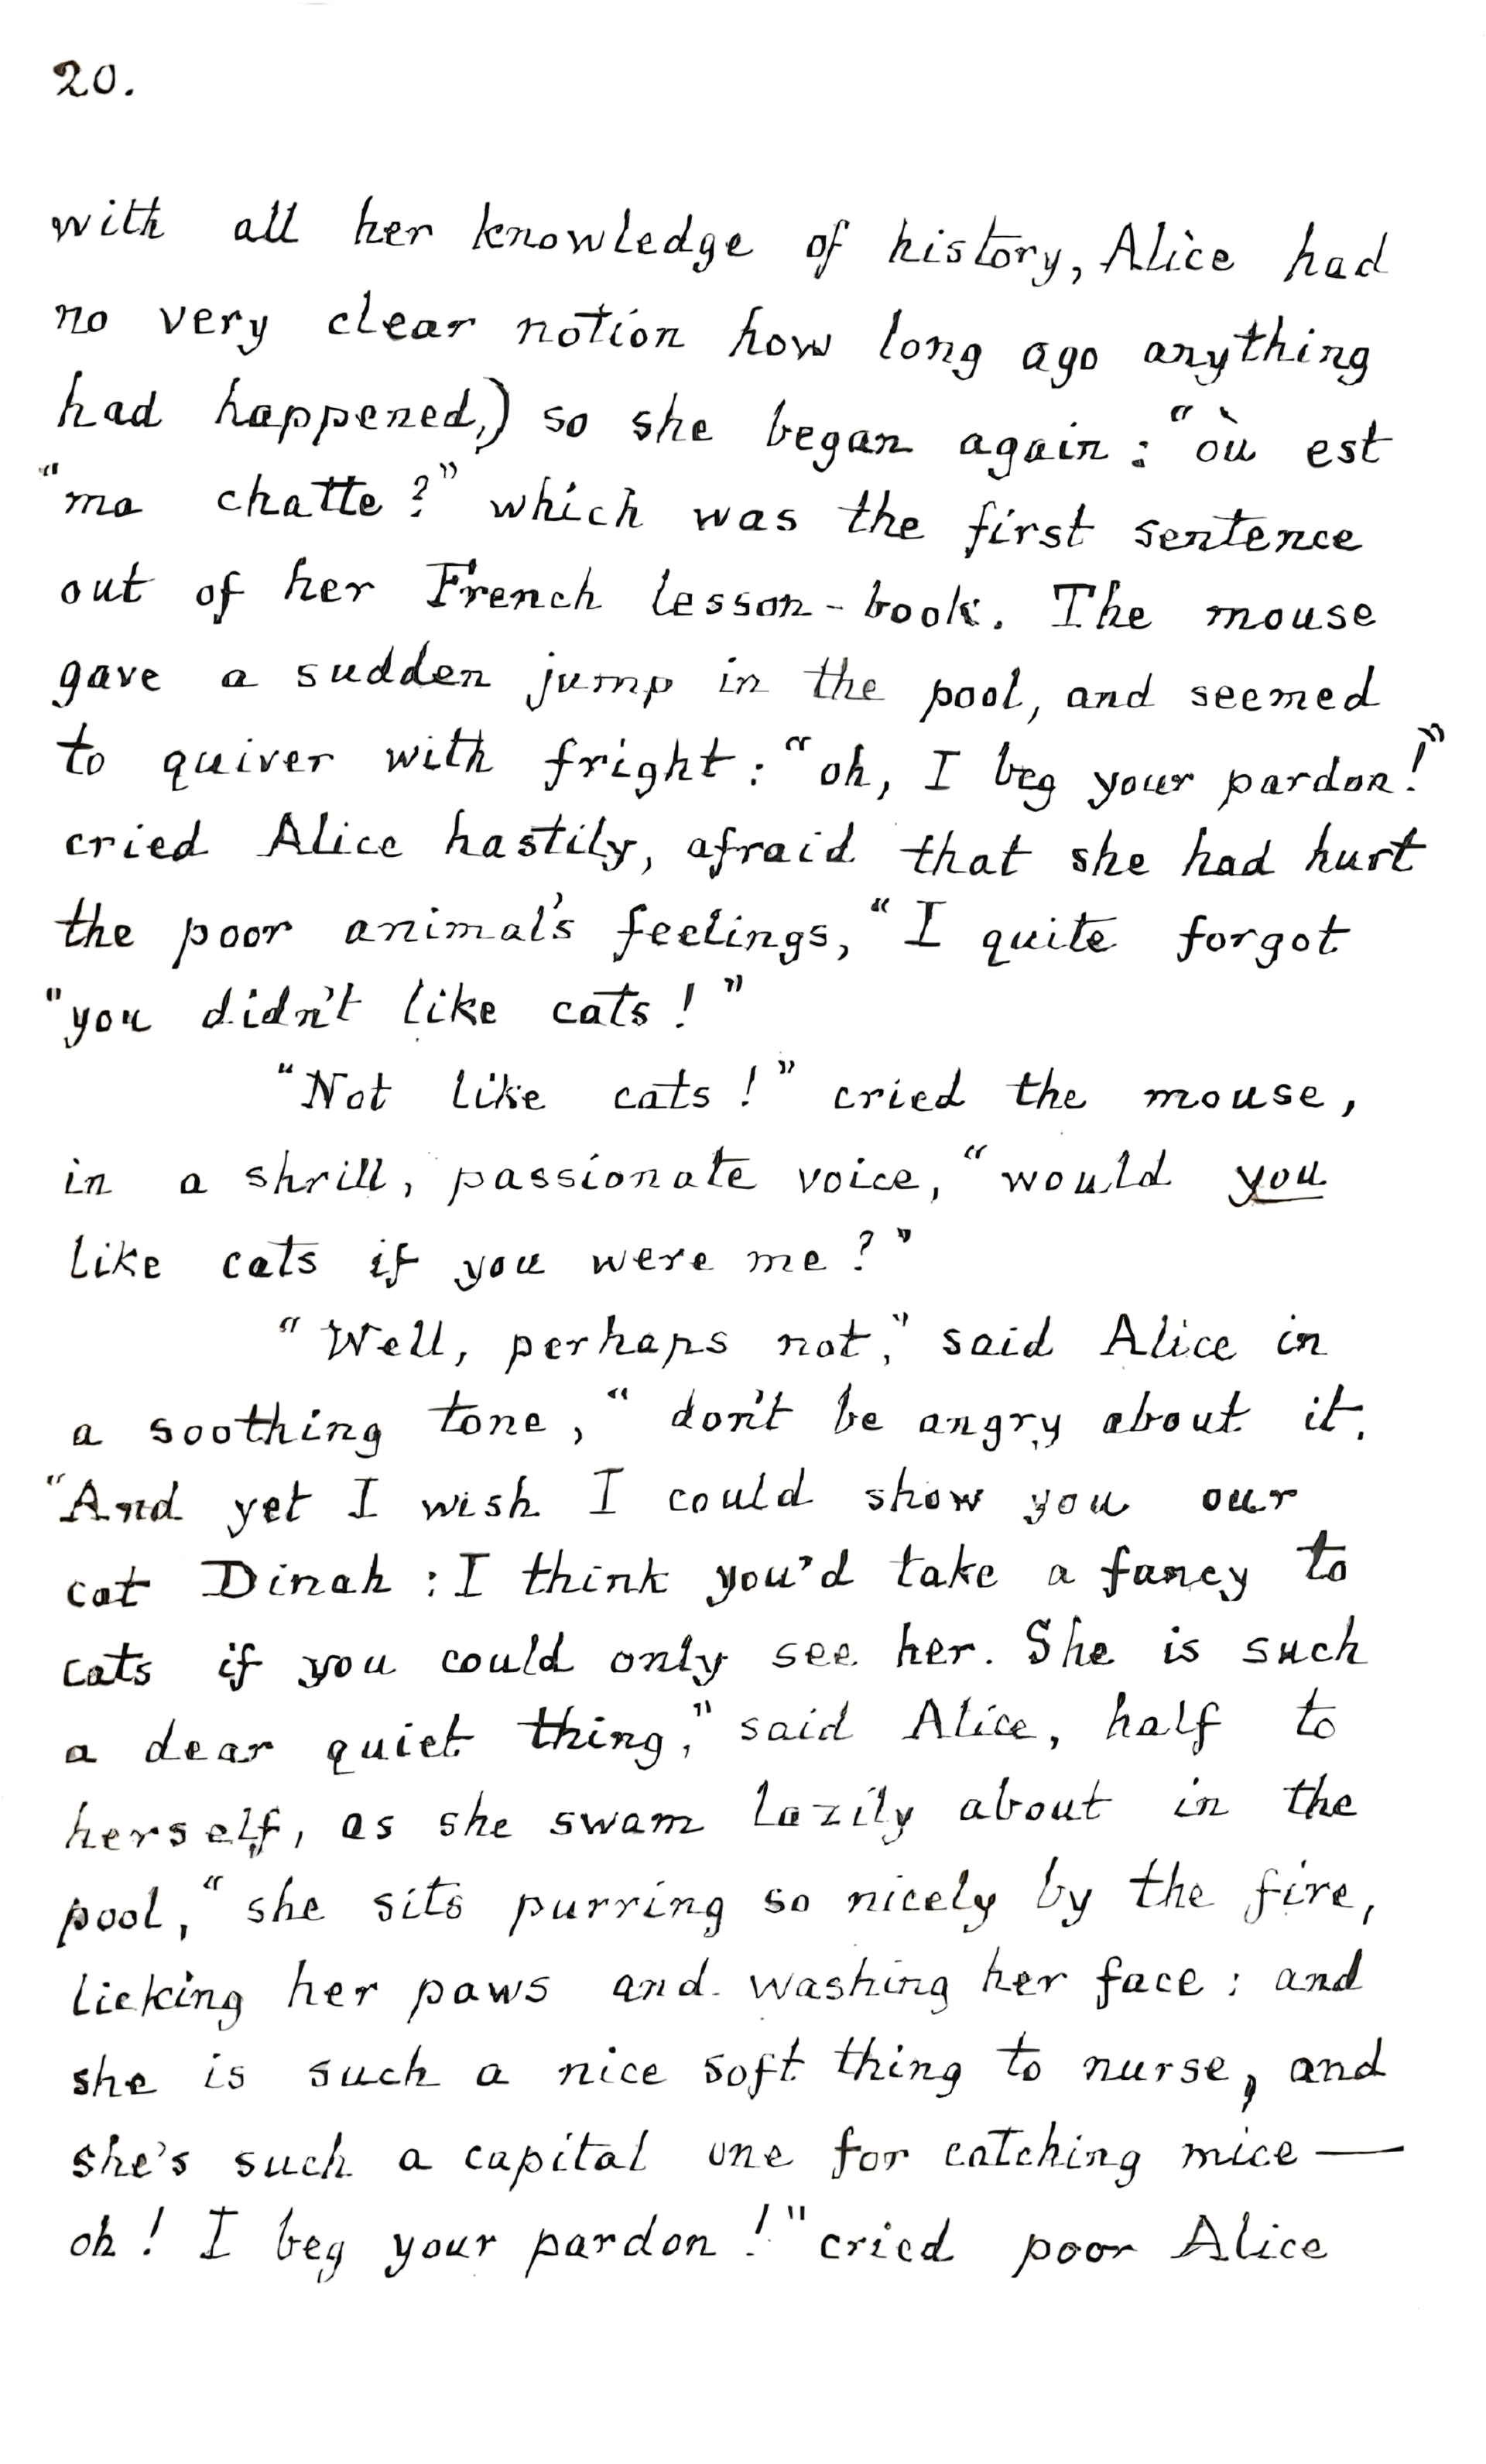 20.
with all her knowledge of history, Alice had
no very clear notion how long ago anything
had happened,) so she began again: "où est
"ma chatte?" which was the first sentence
out of her French lesson-book. The mouse
gave a sudden jump in the pool, and seemed
to quiver with fright: "oh, I beg your pardon!"
cried Alice hastily, afraid that she had hurt
the poor animal's feelings, "I quite forgot
"you didn't like cats!"
"Not like cats!" cried the mouse,
in a shrill, passionate voice, "would you
like cats if you were me?"
"Well, perhaps not," said Alice in
a soothing tone, "don't be angry about it.
"And yet I wish I could show you our
cat Dinah: I think you'd take a fancy to
cats if you could only see her. She is such
a dear quiet thing," said Alice, half to
herself, as she swam lazily about in the
pool, "she sits purring so nicely by the fire,
licking her paws and washing her face: and
she is such a nice soft thing to nurse, and
she's such a capital one for catching mice—
oh! I beg your pardon!" cried poor Alice